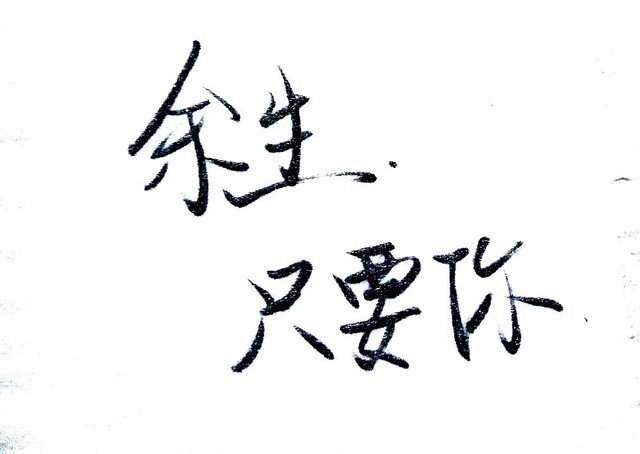 余生.
只要你